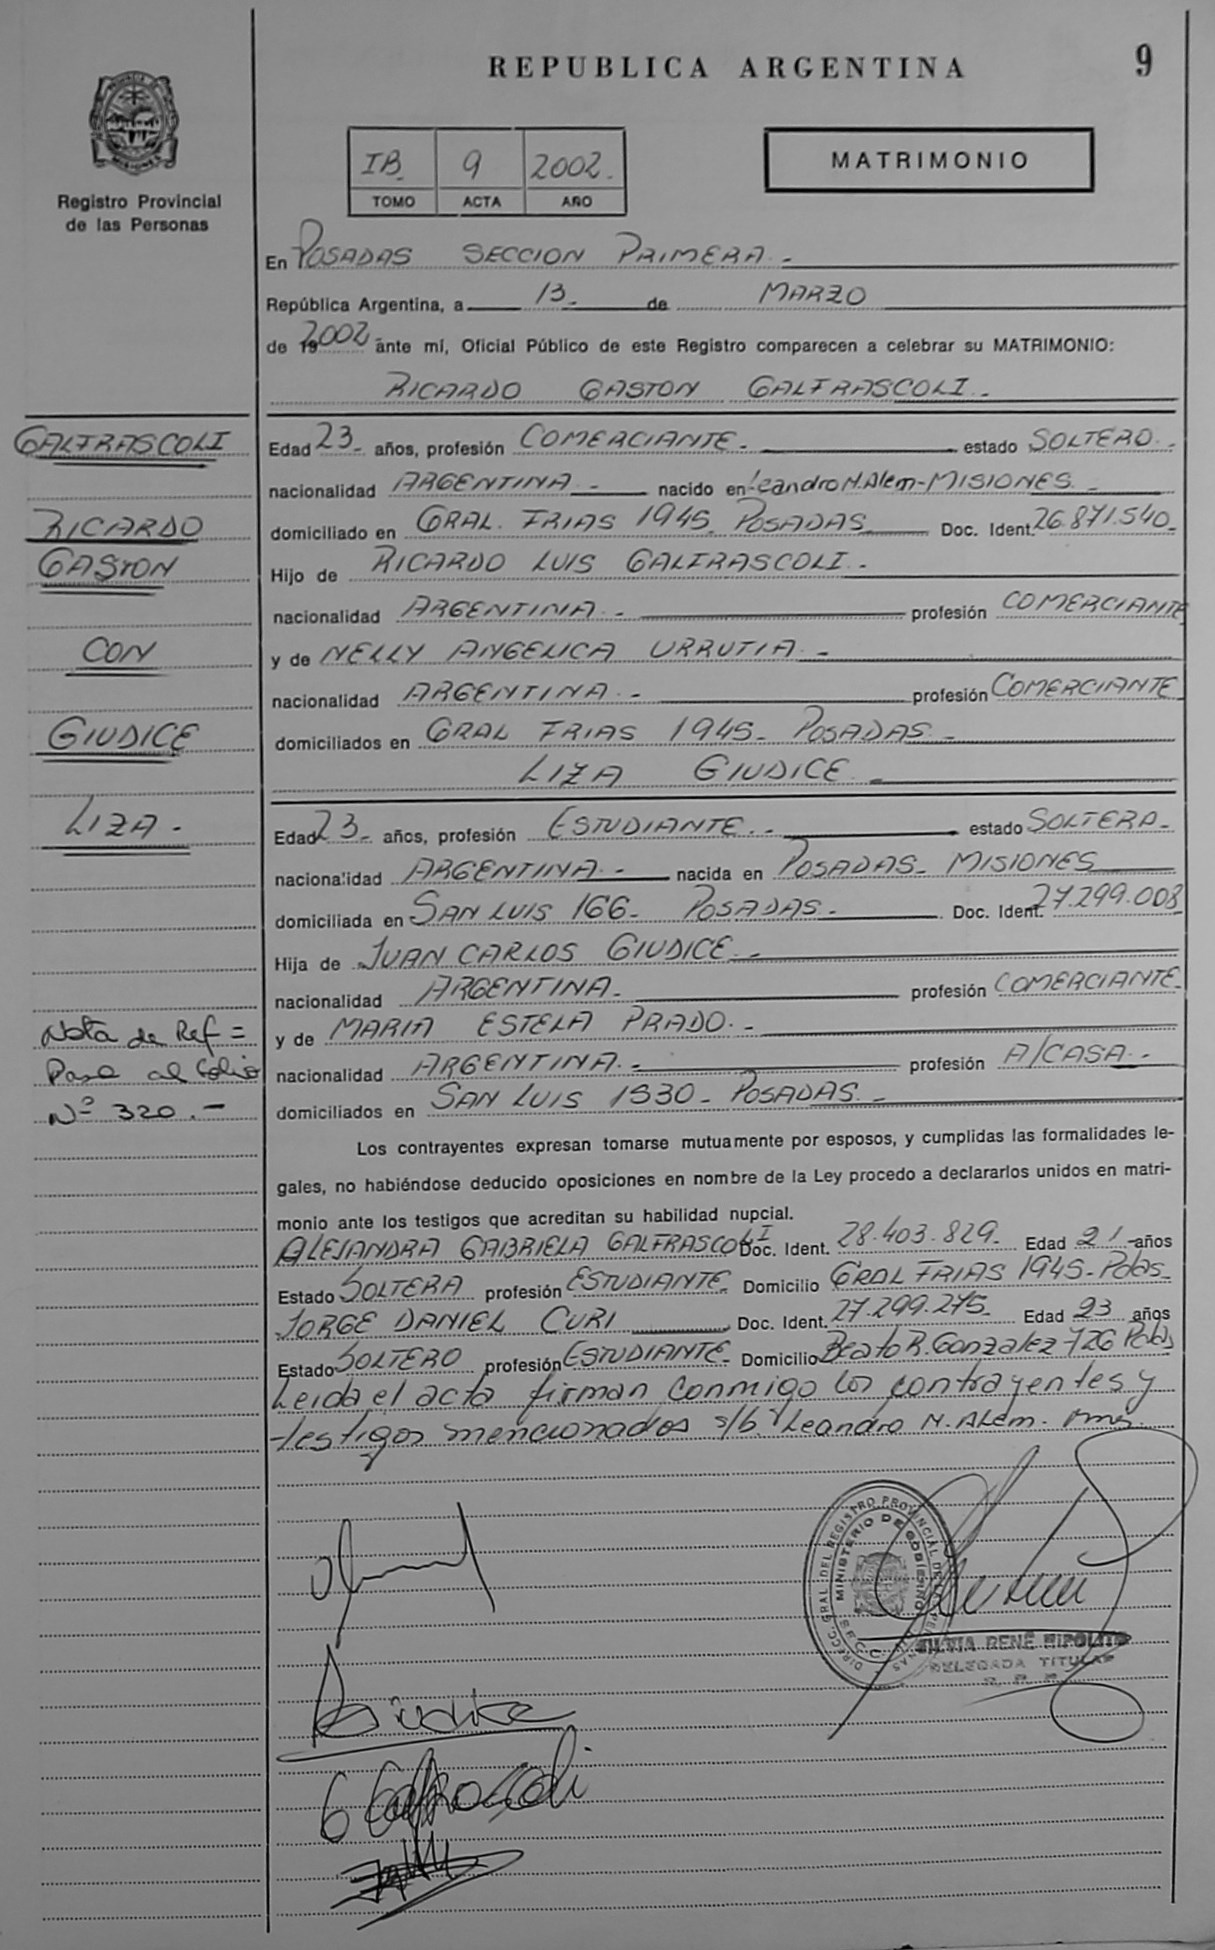 REPUBLICA ARGENTINA
9
Registro Provincial
de las Personas
IB 9 2002.
TOMO ACTA AÑO
MATRIMONIO
En POSADAS SECCION PRIMERA.-
República Argentina, a 13 de MARZO
de 2002 ante mí, Oficial Público de este Registro comparecen a celebrar su MATRIMONIO:
RICARDO GASTON GALFRASCOLI.-
GALFRASCOLI
RICARDO
GASTON
CON
GIUDICE
LIZA.-
Edad 23- años, profesión COMERCIANTE.- estado SOLTERO.-
nacionalidad ARGENTINA.- nacido en Leandro N. Alem-MISIONES.-
domiciliado en GRAL. FRIAS 1945- POSADAS Doc. Ident. 26.871.540-
Hijo de RICARDO LUIS GALFRASCOLI.-
nacionalidad ARGENTINA.- profesión COMERCIANTE
y de NELLY ANGELICA URRUTIA.-
nacionalidad ARGENTINA.- profesión COMERCIANTE
domiciliados en GRAL FRIAS 1945- POSADAS.-
LIZA GIUDICE.-
Edad 23- años, profesión ESTUDIANTE.- estado SOLTERA-
nacionalidad ARGENTINA.- nacida en POSADAS- MISIONES
domiciliada en SAN LUIS 166- POSADAS.- Doc. Ident. 27.299.008
Hija de JUAN CARLOS GIUDICE.-
nacionalidad ARGENTINA.- profesión COMERCIANTE-
y de MARIA ESTELA PRADO.-
nacionalidad ARGENTINA.- profesión A/CASA.-
domiciliados en SAN LUIS 1930- POSADAS.-
Nota de Ref =
Pase al folio
Nº 320.-
Los contrayentes expresan tomarse mutuamente por esposos, y cumplidas las formalidades le-
gales, no habiéndose deducido oposiciones en nombre de la Ley procedo a declararlos unidos en matri-
monio ante los testigos que acreditan su habilidad nupcial.
ALEJANDRA GABRIELA GALFRASCOLI Doc. Ident. 28.403.829- Edad 21 años
Estado SOLTERA profesión ESTUDIANTE- Domicilio GRAL FRIAS 1945- Pdas-
JORGE DANIEL CURI Doc. Ident. 27.299.275- Edad 23 años
Estado SOLTERO profesión ESTUDIANTE- Domicilio Beato R. Gonzalez 726 Pdas
Leida el acta firman conmigo los contrayentes y
testigos mencionados s/b. Leandro N. Alem.
DIRECC. GRAL. DEL REGISTRO PROVINCIAL DE LAS PERSONAS
MINISTERIO DE GOBIERNO
SILVIA RENÉ HIPOLITO
DELEGADA TITULAR
R. P. P.
Giudice
G Galfrascoli